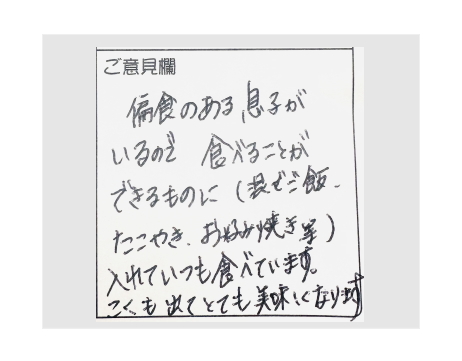 ご意見欄
偏食のある息子が
いるので 食べることが
できるものに(混ぜご飯、
たこやき、お好み焼き等)
入れていつも食べています。
こくも出てとても美味しくなります